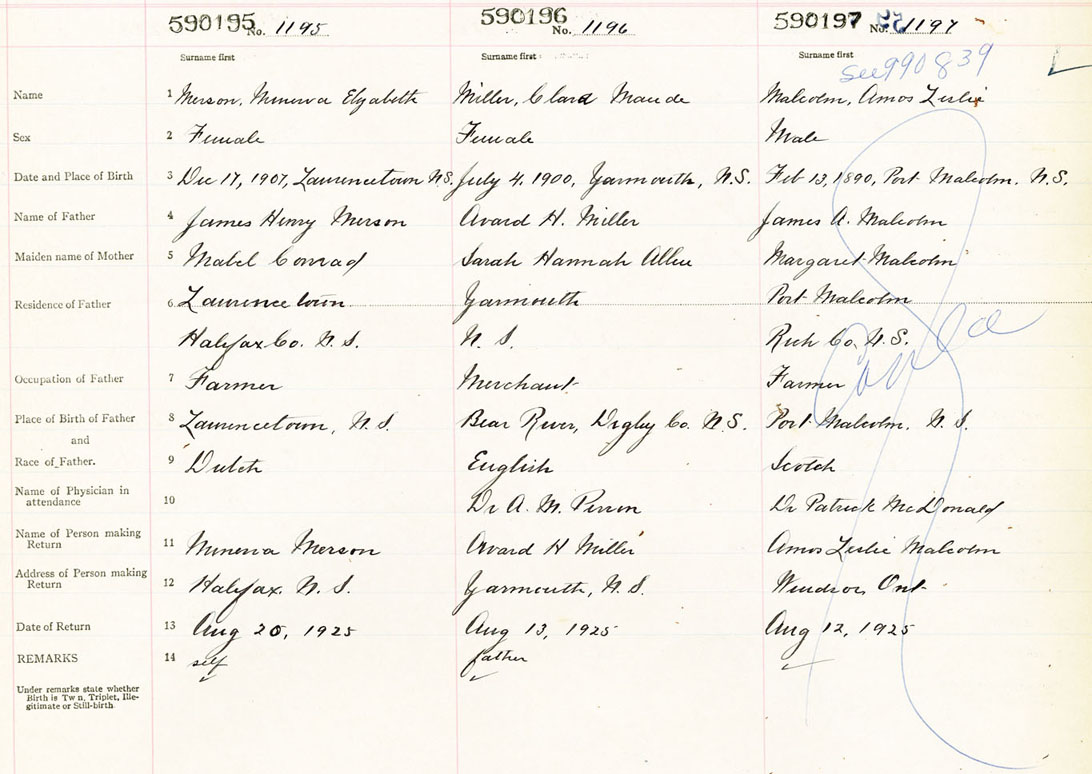 590195 No. 1195 590196 No. 1196 590197 No. 1197
Surname first Surname first Surname first see 990839
Name 1 Merson, Minerva Elizabeth Miller, Clara Maude Malcolm, Amos Leslie
Sex 2 Female Female Male
Date and Place of Birth 3 Dec 17, 1907, Lawrencetown N.S. July 4, 1900, Yarmouth, N.S. Feb 13, 1890, Port Malcolm, N.S.
Name of Father 4 James Henry Merson Avard H. Miller James A. Malcolm
Maiden name of Mother 5 Mabel Conrad Sarah Hannah Allen Margaret Malcolm
Residence of Father 6 Lawrencetown Yarmouth Port Malcolm
Halifax Co. N.S. N.S. Rich Co. N.S.
Occupation of Father 7 Farmer Merchant Farmer
Place of Birth of Father 8 Lawrencetown, N.S. Bear River, Digby Co. N.S. Port Malcolm, N.S.
and
Race of Father. 9 Dutch English Scotch
Name of Physician in attendance 10 Dr A. M. Perrin Dr Patrick McDonald
Name of Person making Return 11 Minerva Merson Avard H Miller Amos Leslie Malcolm
Address of Person making Return 12 Halifax N.S. Yarmouth, N.S. Windsor Ont
Date of Return 13 Aug 20, 1925 Aug 13, 1925 Aug 12, 1925
REMARKS 14 self father
Under remarks state whether
Birth is Twin, Triplet, Ille-
gitimate or Still-birth